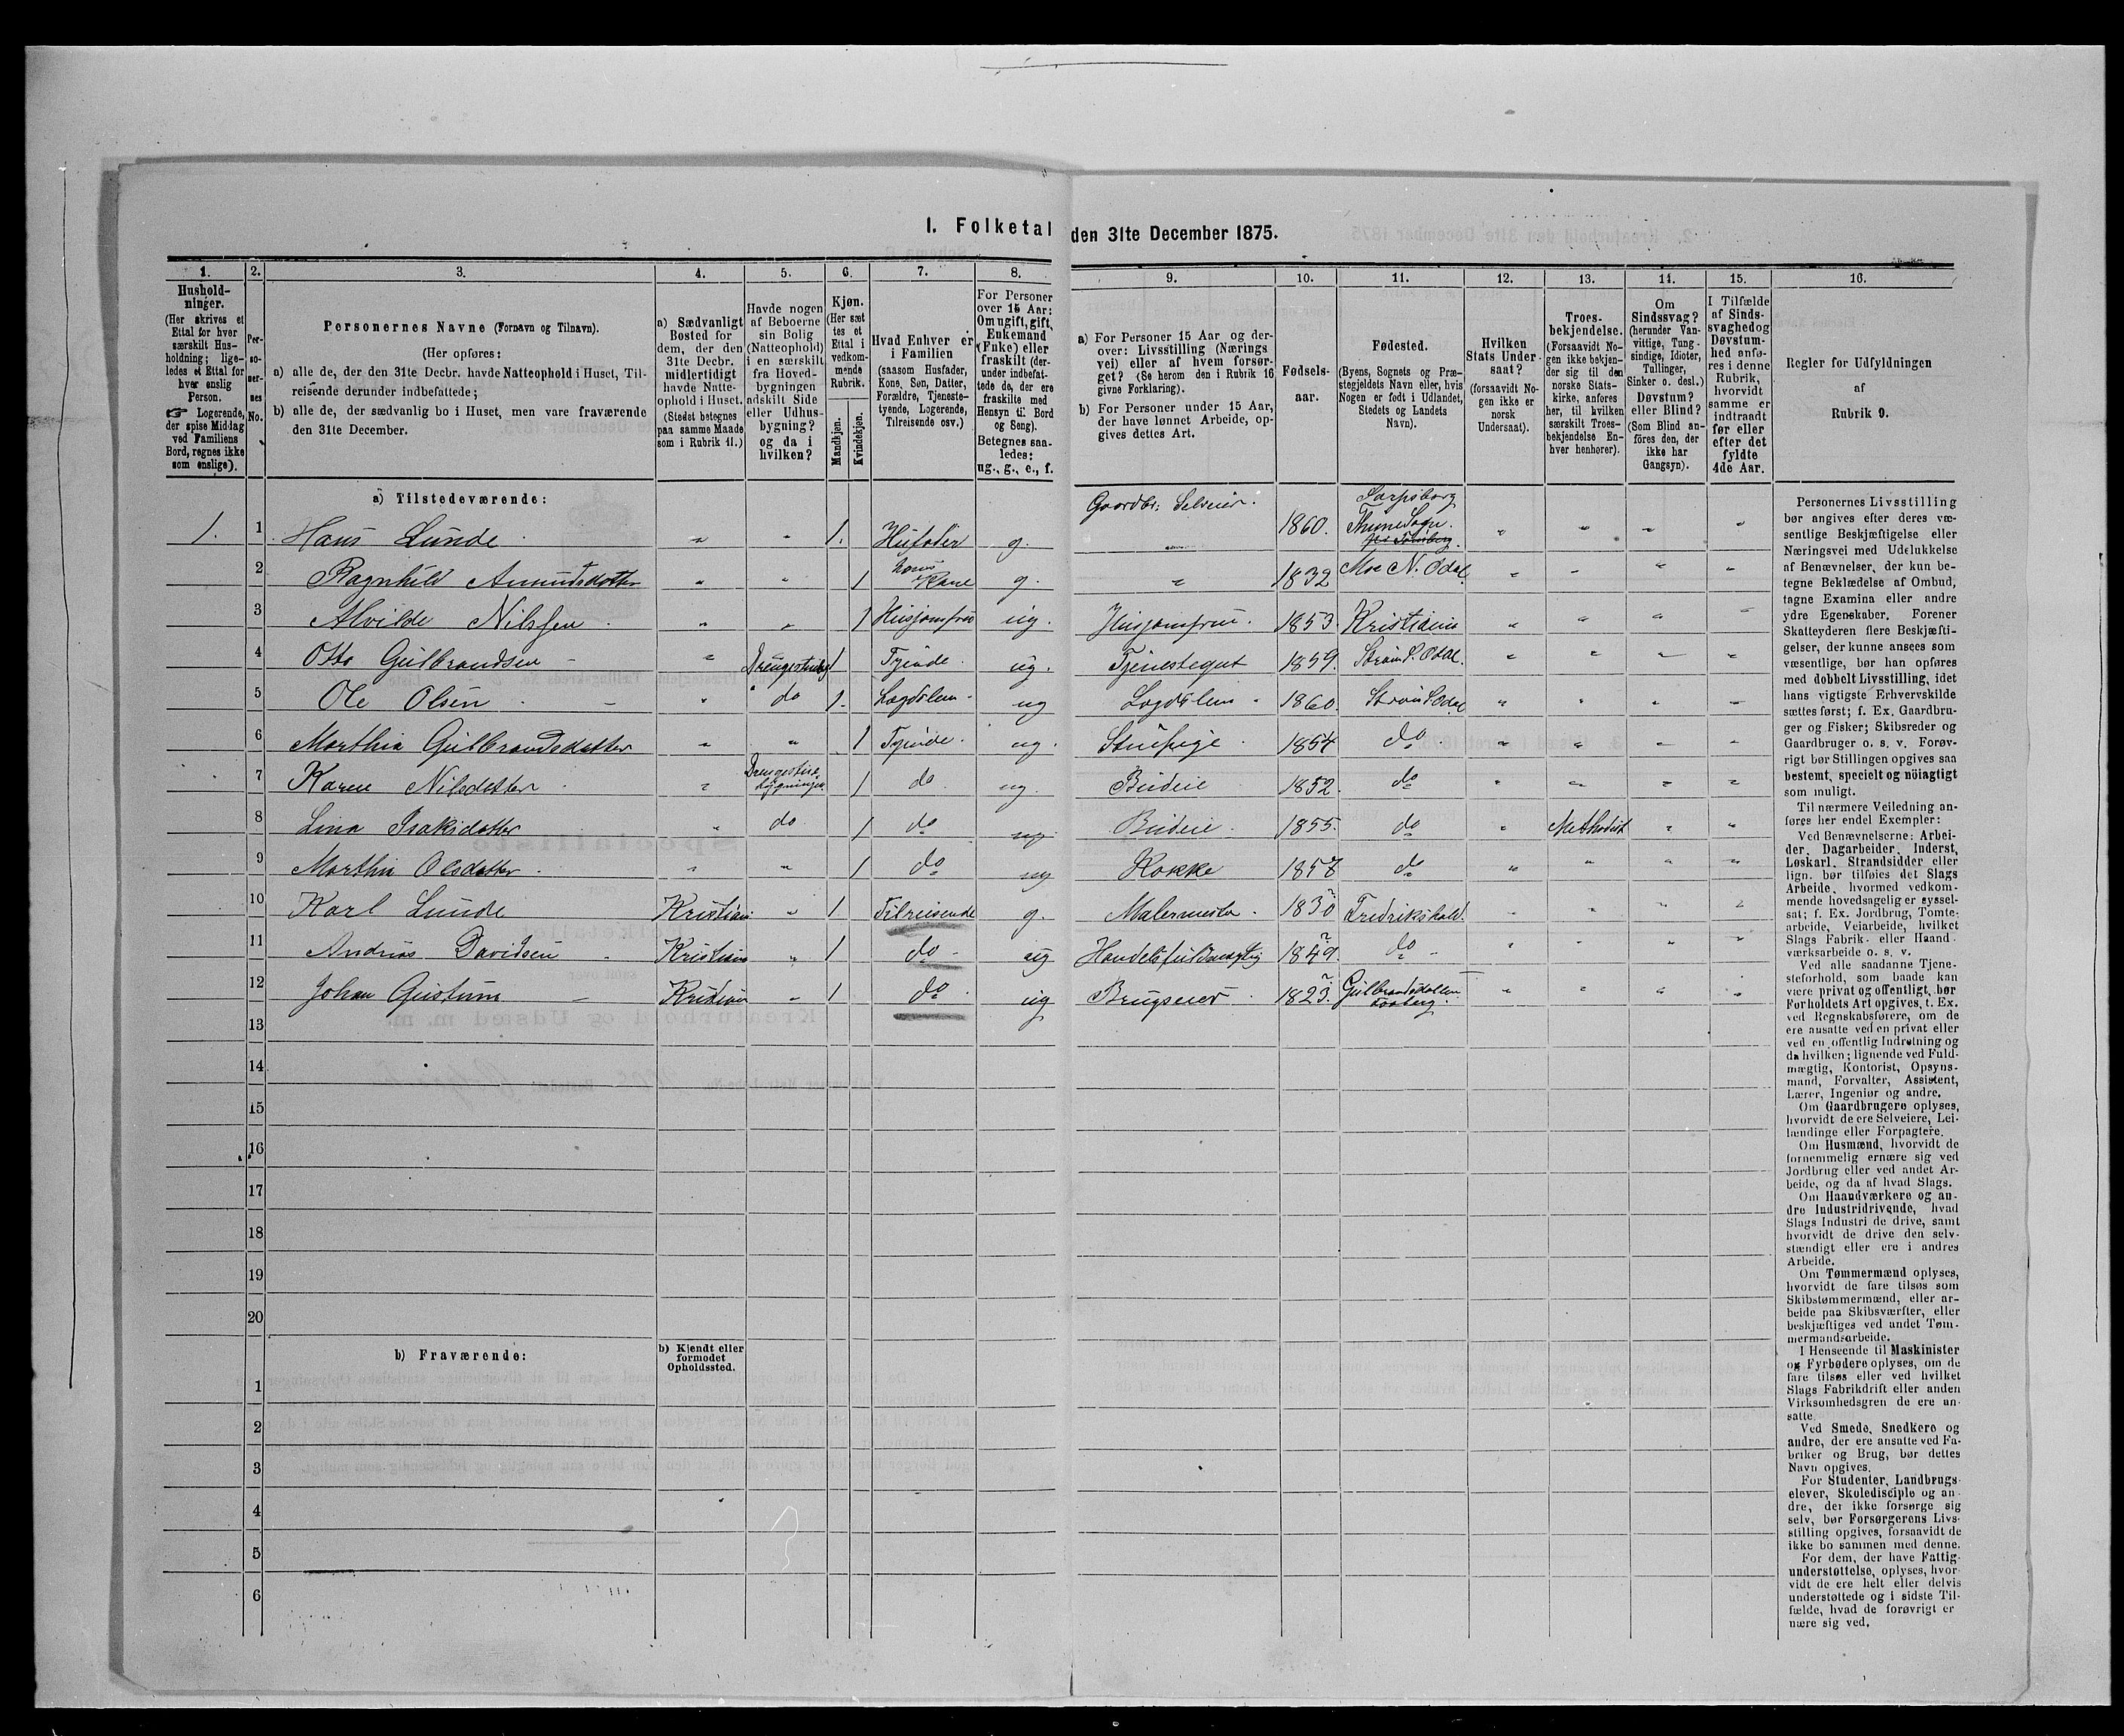 I. Folketal den 31te December 1875.
1. 2. 3. 4. 5. 6. 7. 8. 9. 10. 11. 12. 13. 14. 15. 16.
Hushold-
ninger.
(Her skrives et
Ettal for hver
særskilt Hus-
holdning; lige-
ledes et Ettal for
hver enslig
Person.
☞ Logerende,
der spise Middag
ved Familiens
Bord, regnes ikke
som enslige).
Per-
so-
ner-
nes
No.
Personernes Navne (Fornavn og Tilnavn).
(Her opføres:
a) alle de, der den 31te Decbr. havde Natteophold i Huset, Til-
reisende derunder indbefattede;
b) alle de, der sædvanlig bo i Huset, men vare fraværende
den 31te December.
a) Sædvanligt
Bosted for
dem, der den
31te Decbr.
midlertidigt
havde Natte-
ophold i Huset.
(Stedet betegnes
paa samme Maade
som i Rubrik 11.)
Havde nogen
af Beboerne
sin Bolig
(Natteophold)
i en særskilt
fra Hoved-
bygningen
adskilt Side
eller Udhus-
bygning?
og da i
hvilken?
Kjøn.
(Her sæt
tes et
Ettal i
vedkom-
mende
Rubrik.
Mandkjøn.
Kvindekjøn.
Hvad Enhver er
i Familien
(saasom Husfader,
Kone, Søn, Datter,
Forældre, Tjeneste-
tyende, Logerende,
Tilreisende osv.)
For Personer
over 15 Aar:
Om ugift, gift,
Enkemand
(Enke) eller
fraskilt (der-
under indbefat-
tede de, der ere
fraskilte med
Hensyn til Bord
og Seng).
Betegnes saa-
ledes:
ug., g., e., f.
a) For Personer 15 Aar og der-
over: Livsstilling (Nærings
vei) eller af hvem forsør-
get? (Se herom den i Rubrik 16
givne Forklaring).
b) For Personer under 15 Aar,
der have lønnet Arbeide, op-
gives dettes Art.
Fødsels-
aar.
Fødested.
(Byens, Sognets og Præ-
stegjeldets Navn eller, hvis
Nogen er født i Udlandet,
Stedets og Landets
Navn).
Hvilken
Stats Under-
saat?
(forsaavidt No-
gen ikke er
norsk
Undersaat).
Troes-
bekjendelse.
(Forsaavidt No-
gen ikke bekjen-
der sig til den
norske Stats-
kirke, anføres
her, til hvilken
særskilt Troes-
bekjendelse En-
hver henhører).
Om
Sindssvag?
(herunder Van-
vittige, Tung-
sindige, Idioter,
Tullinger,
Sinker o. desl.)
Døvstum?
eller Blind?
(Som Blind an-
føres den, der
ikke har
Gangsyn).
I Tilfælde
af Sinds-
svaghed og
Døvstum-
hed anfø-
res i denne
Rubrik,
hvorvidt
samme er
indtraadt
før eller
efter det
fyldte
4de Aar.
Regler for Udfyldningen
af
Rubrik 9.
a) Tilstedeværende:
1. 1 Hans Lunde " " 1. Husfader g. Gaardbr. Selveier. 1860. Sarpsborg Thune Sogn. " " " "
2 Ragnhild Amundsdatter " " 1 hans Kone g. " 1832 Moe N. Odal. " " " "
3 Alvilde Nilssen " " 1 Husjomfru ug. Husjomfru. 1853. Kristiania " " " "
4 Otto Gulbrandsen " Drengestube 1 Tyende. ug. Tjenestegut 1859. Strøm S. Odal. " " " "
5 Ole Olsen " do 1. Lægdslem ug Lægdslem 1860. Strøm S. Odal " " " "
6 Marthia Gulbrandsdatter " " 1 Tyende. ug. Stuepige 1854 do " " " "
7 Karen Nilsdatter " Drengestue bygningen 1 do ug. Budeie 1852. do " " " "
8 Lina Isaksdatter " do 1 do ug. Budeie 1855. do " Methodist " "
9 Marthia Olsdatter " " 1 do ug Kokke 1857 do " " " "
10 Karl Lunde Kristiania " 1 Tilreisende g. Malermester. 1830 Fredrikshald. " " " "
11 Andreas Davidsen Kristiania " 1 do ug Handelsfuldmægtig 1849. do " " " "
12 Johan Gustum Kristiania " 1 do ug Brugseier 1823. Gulbrandsdalen Faaberg. " " " "
13
14
15
16
17
18
19
20
b) Fraværende:
b) Kjendt eller
formodet
Opholdssted.
1
2
3
4
5
6
Personernes Livsstilling
bør angives efter deres væ-
sentlige Beskjæftigelse eller
Næringsvei med Udelukkelse
af Benævnelser, der kun be-
tegne Beklædelse af Ombud,
tagne Examina eller andre
ydre Egenskaber. Forener
Skatteyderen flere Beskjæfti-
gelser, der kunne ansees som
væsentlige, bør han opføres
med dobbelt Livsstilling, idet
hans vigtigste Erhvervskilde
sættes først; f. Ex. Gaardbru-
ger og Fisker; Skibsreder og
Gaardbruger o. s. v. Forøv-
rigt bør Stillingen opgives saa
bestemt, specielt og nöiagtigt
som muligt.
Til nærmere Veiledning an-
føres her endel Exempler:
Ved Benævnelserne: Arbei-
der, Dagarbeider, Inderst,
Løskarl, Strandsidder eller
lign. bør tilføies det Slags
Arbeide, hvormed vedkom-
mende hovedsagelig er syssel-
sat; f. Ex. Jordbrug, Tomte-
arbeide, Veiarbeide, hvilket
Slags Fabrik- eller Haand-
værksarbeide o. s. v.
Ved alle saadanne Tjene-
steforhold, som baade kan
være privat og offentligt, bør
Forholdets Art opgives, t. Ex.
ved Regnskabsførere, om de
ere ansatte ved en privat eller
ved en offentlig Indretning og
da hvilken; lignende ved Fuld-
mægtig, Kontorist, Opsyns-
mand, Forvalter, Assistent,
Lærer, Ingeniør og andre.
Om Gaardbrugere oplyses,
hvorvidt de ere Selveiere, Lei-
lændinge eller Forpagtere.
Om Husmænd, hvorvidt de
fornemmelig ernære sig ved
Jordbrug eller ved andet Ar-
beide, og da af hvad Slags.
Om Haandværkere og an-
dre Industridrivende, hvad
Slags Industri de drive, samt
hvorvidt de drive den selv-
stændigt eller ere i andres
Arbeide.
Om Tømmermænd oplyses,
hvorvidt de fare tilsøs som
Skibstømmermænd, eller ar-
beide paa Skibsværfter, eller
beskjæftiges ved andet Tøm-
mermandsarbeide.
I Henseende til Maskinister
og Fyrbødere oplyses, om de
fare tilsøs eller ved hvilket
Slags Fabrikdrift eller anden
Virksomhedsgren de ere an-
satte.
Ved Smede, Snedkere og
andre, der ere ansatte ved Fa-
briker og Brug, bør dettes
Navn opgives.
For Studenter, Landbrugs-
elever, Skoledisciple og an-
dre, der ikke forsørge sig
selv, bør Forsørgerens Livs-
stilling opgives, forsaavidt de
ikke bo sammen med denne.
For dem, der have Fattig-
understøttelse, oplyses, hvor-
vidt de ere helt eller delvis
understøttede og i sidste Til-
fælde, hvad de forøvrigt er
nære sig ved.